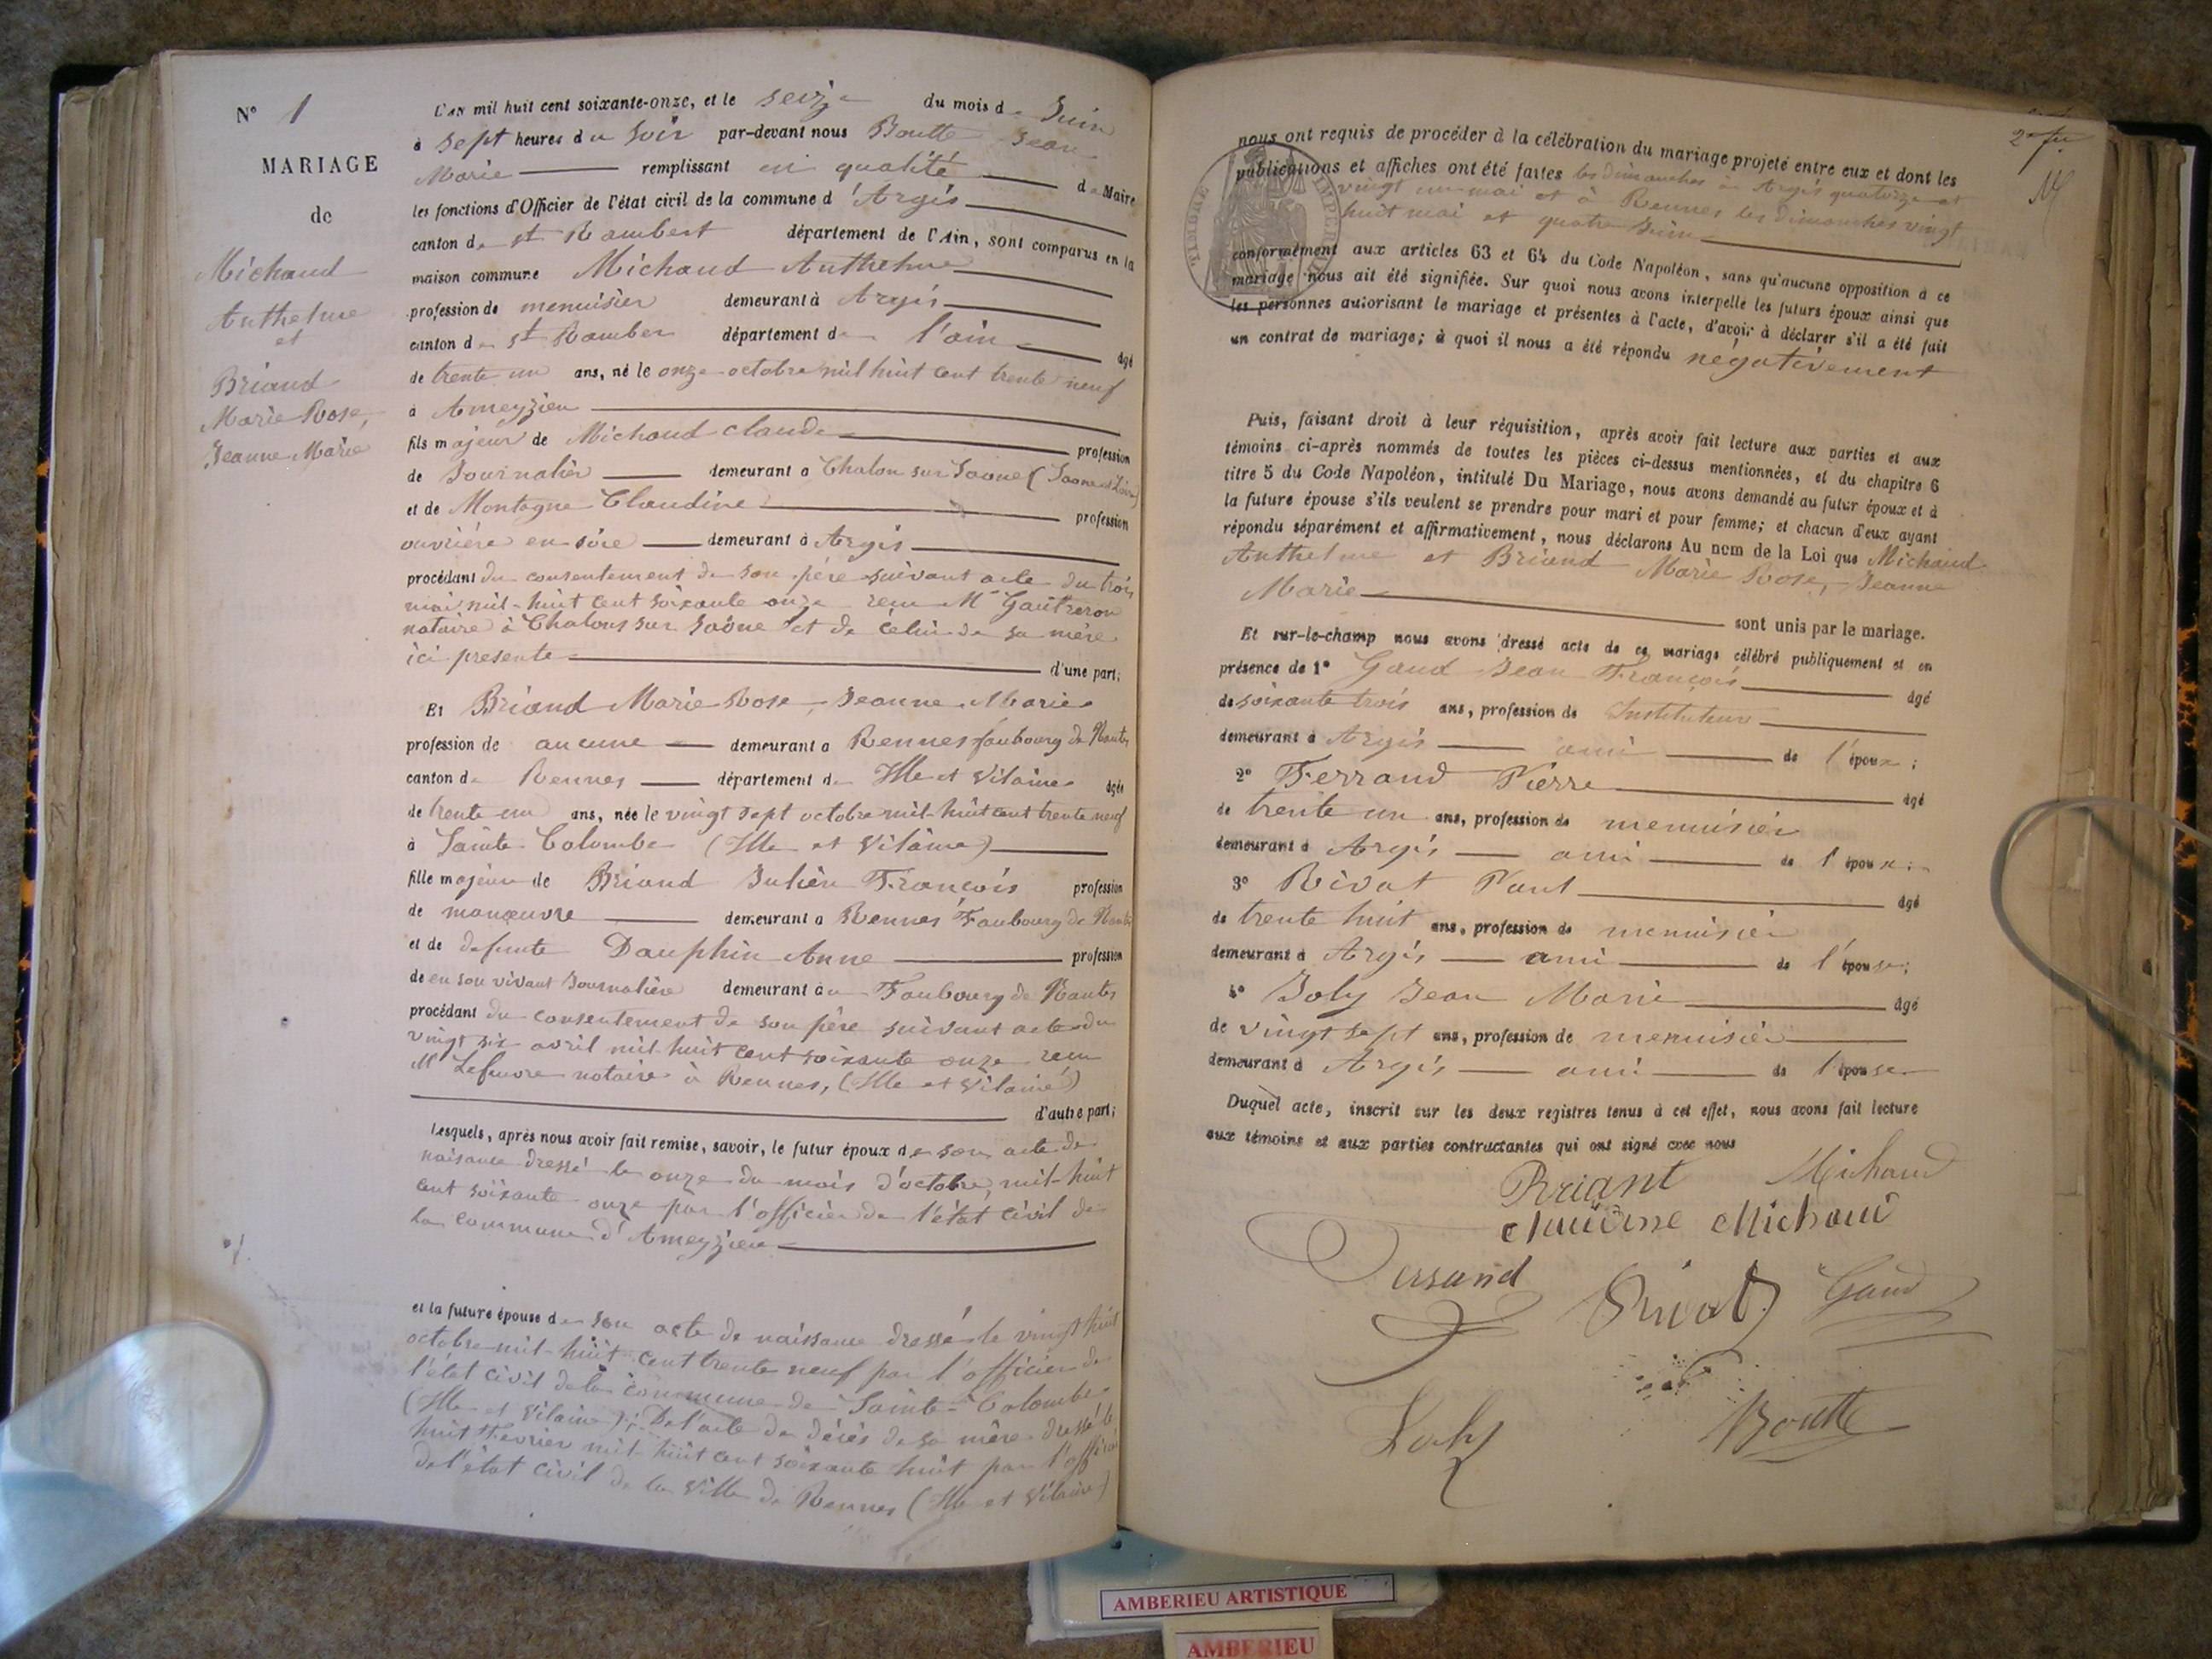 N° 1
MARIAGE
de
Michaud
Anthelme
et
Briand
Marie Rose,
Jeanne Marie
L'an mil huit cent soixante-onze, et le seize du mois de Juin
à sept heures du soir par-devant nous Boutte Jean
Marie remplissant en qualité de Maire
les fonctions d'Officier de l'état civil de la commune d'Argis
canton de st Rambert département de l'Ain, sont comparus en la
maison commune Michaud Anthelme
profession de menuisier demeurant à Argis
canton de st Ramber département de l'ain âgé
de trente un ans, né le onze octobre mil huit cent trente neuf
à Ameyzieu
fils majeur de Michaud Claude profession
de Journalier demeurant a Chalon sur Saone (Saone et Loire)
et de Montagne Claudine profession
ouvrière en soie demeurant à Argis
procédant du consentement de son père suivant acte du trois
mai mil-huit cent soixante onze reçu Mr Gautreron
notaire à Chalons sur Saône et de celui de sa mère
ici presente d'une part;
Et Briand Marie Rose, Jeanne Marie
profession de aucune demeurant a Rennes faubourg de Nantes
canton de Rennes département de Ille et Vilaine âgée
de trente un ans, née le vingt sept octobre mil-huit cent trente neuf
à Sainte Colombe (Ille et Vilaine)
fille majeure de Briand Julien François profession
de manœuvre demeurant a Rennes Faubourg de Nantes
et de defunte Dauphin Anne profession
de en son vivant Journalière demeurant au Faubourg de Nantes
procédant du consentement de son père suivant acte du
vingt six avril mil-huit cent soixante onze reçu
Mr Lefeuvre notaire à Rennes, (Ille et Vilaine)
d'autre part;
Lesquels, après nous avoir fait remise, savoir, le futur époux de son acte de
naissance dressé le onze du mois d'octobre, mil-huit
cent soixante onze par l'officier de l'état civil de
la commune d'Ameyzieu
et la future épouse de son acte de naissance dressé le vingt huit
octobre mil-huit cent trente neuf par l'officier de
l'état civil de la commune de Sainte-Colombe
(Ille et Vilaine); De l'acte de décès de sa mère dressé le
huit Fevrier mil huit cent soixante huit par l'officier
de l'état civil de la Ville de Rennes (Ille et Vilaine)
2me fu
nous ont requis de procéder à la célébration du mariage projeté entre eux et dont les
publications et affiches ont été faites les dimanches à Argis quatorze et
vingt un mai et à Rennes les dimanches vingt
huit mai et quatre Juin
TIMBRE IMPERIAL
conformément aux articles 63 et 64 du Code Napoléon, sans qu'aucune opposition à ce
mariage nous ait été signifiée. Sur quoi nous avons interpellé les futurs époux ainsi que
les personnes autorisant le mariage et présentes à l'acte, d'avoir à déclarer s'il a été fait
un contrat de mariage; à quoi il nous a été répondu négativement
Puis, faisant droit à leur réquisition, après avoir fait lecture aux parties et aux
témoins ci-après nommés de toutes les pièces ci-dessus mentionnées, et du chapitre 6
titre 5 du Code Napoléon, intitulé Du Mariage, nous avons demandé au futur époux et à
la future épouse s'ils veulent se prendre pour mari et pour femme; et chacun d'eux ayant
répondu séparément et affirmativement, nous déclarons Au nom de la Loi que Michaud
Anthelme et Briand Marie Rose, Jeanne
Marie sont unis par le mariage.
Et sur-le-champ nous avons dressé acte de ce mariage célébré publiquement et en
présence de 1° Gaud Jean François âgé
de soixante trois ans, profession de Instituteur
demeurant à Argis ami de l'époux;
2° Ferrand Pierre âgé
de trente un ans, profession de menuisier
demeurant à Argis ami de l'époux;
3° Rivat Paul âgé
de trente huit ans, profession de menuisier
demeurant à Argis ami de l'épouse;
4° Joly Jean Marie âgé
de vingt sept ans, profession de menuisier
demeurant à Argis ami de l'épouse
Duquel acte, inscrit sur les deux registres tenus à cet effet, nous avons fait lecture
aux témoins et aux parties contractantes qui ont signé avec nous
Briant Michaud
Claudine Michaud
Ferrand Rivat Gaud
Joly Boutte
AMBERIEU ARTISTIQUE
AMBERIEU